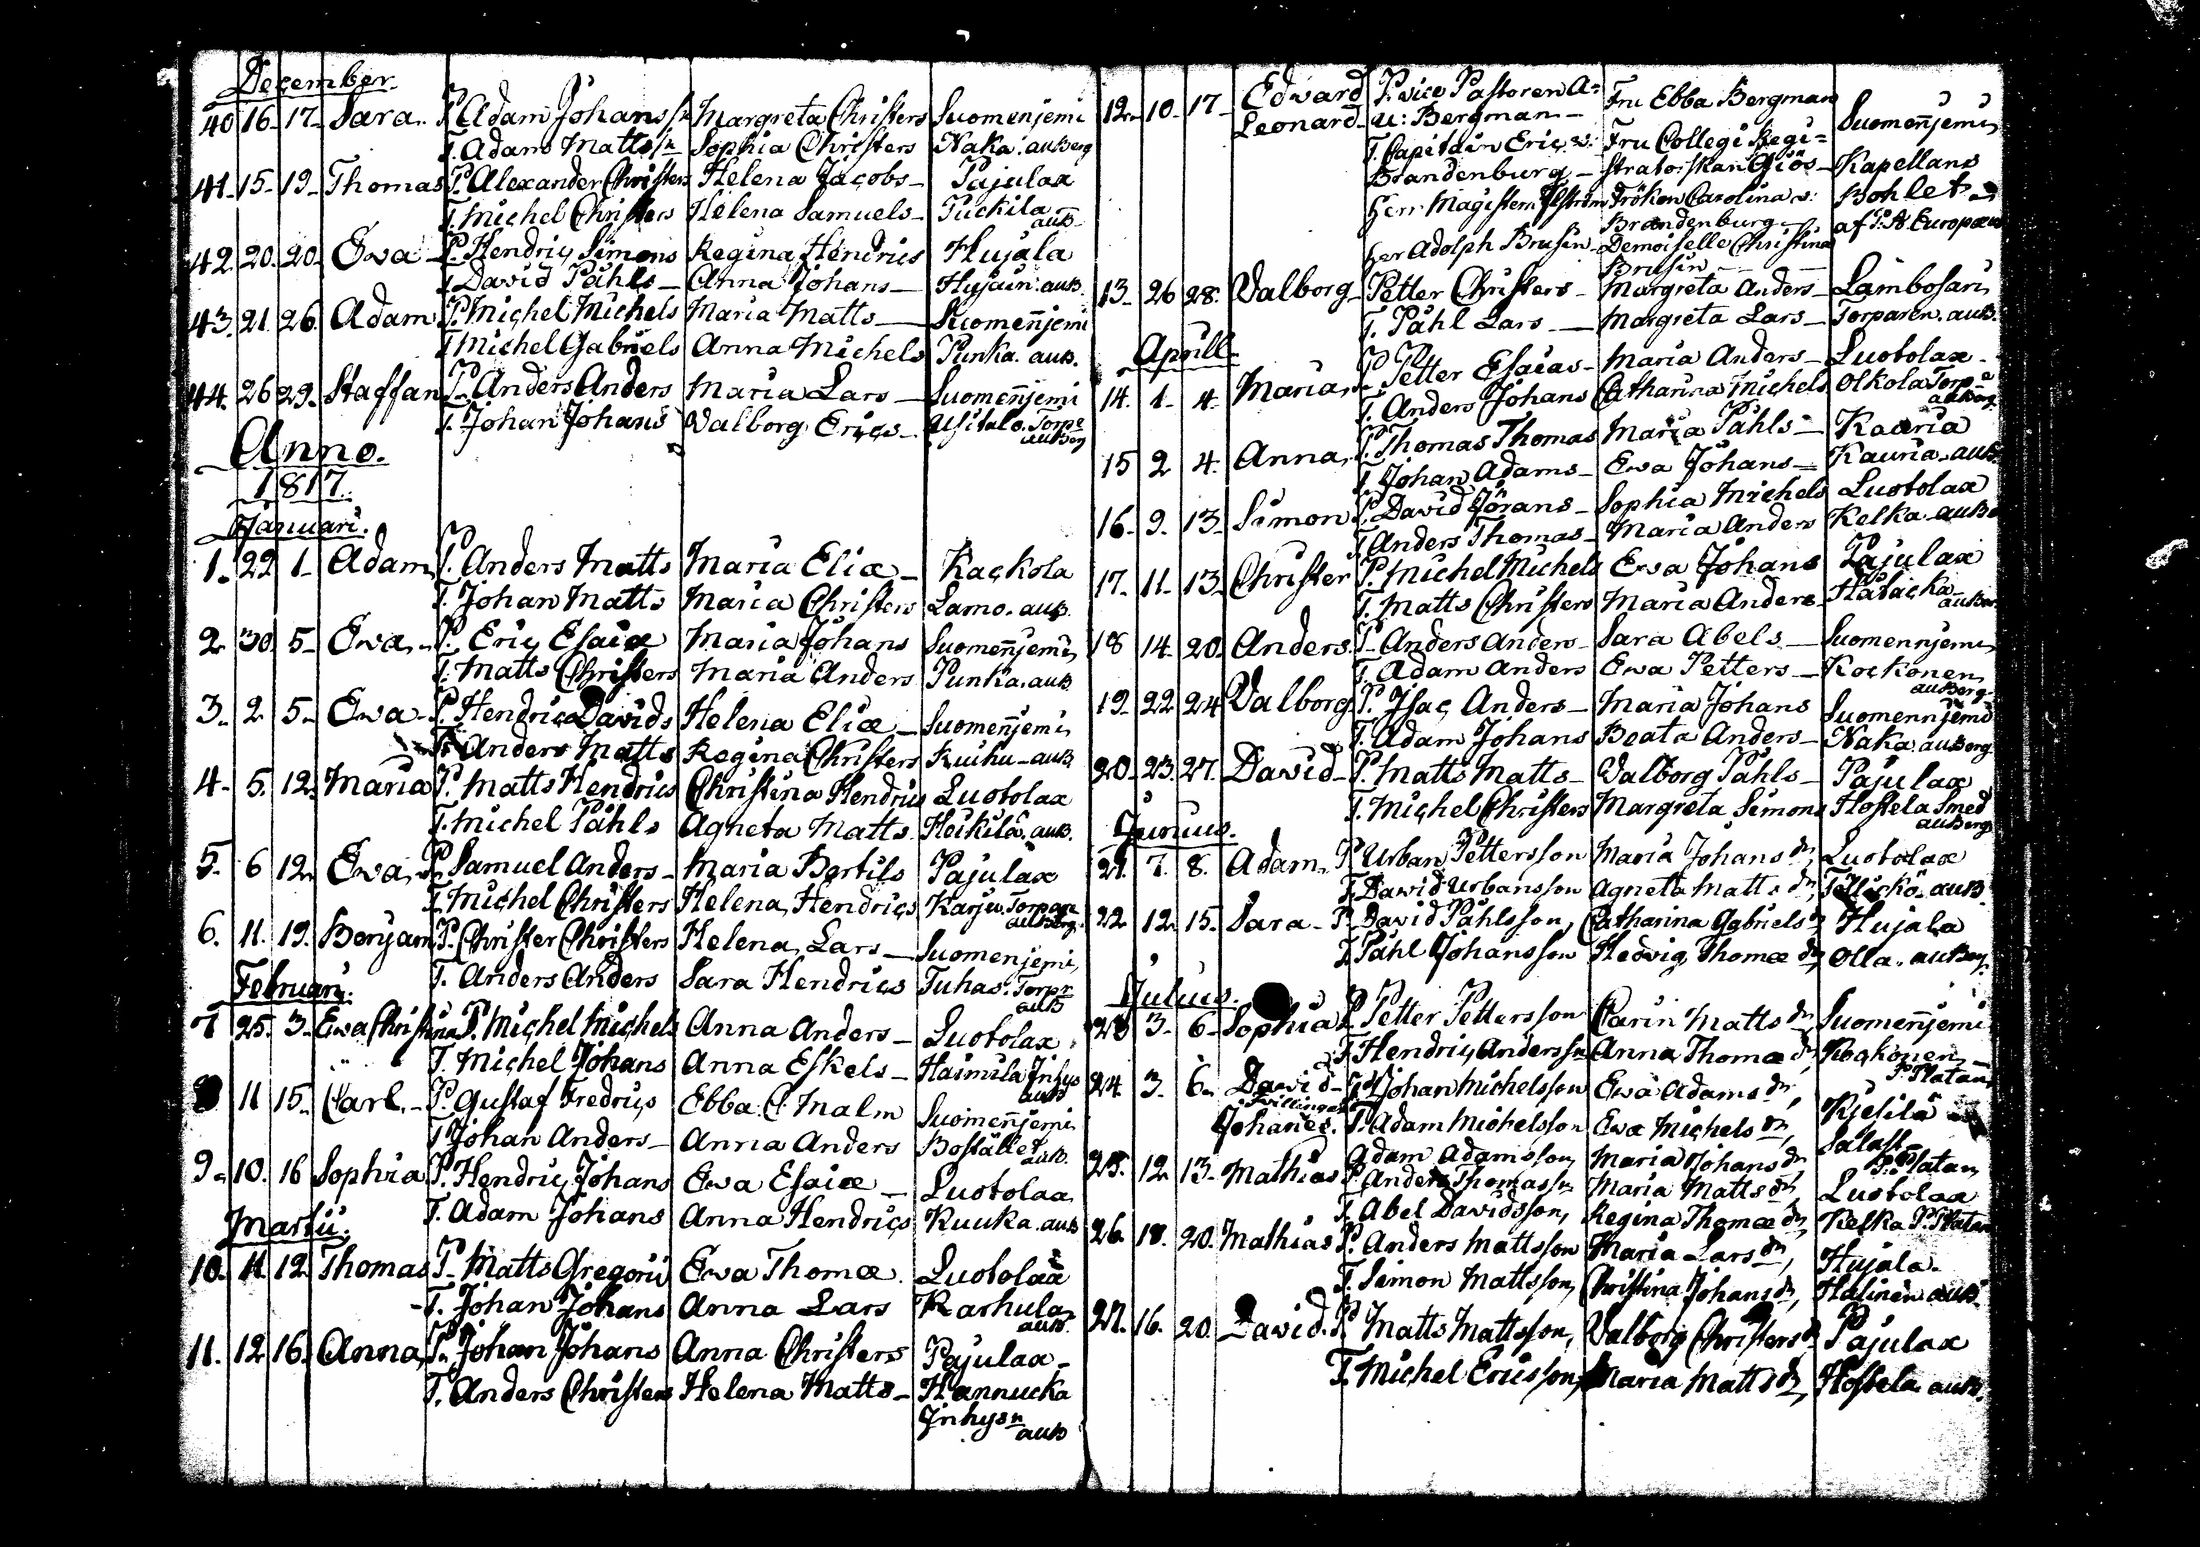 December.
40 16. 17. Sara. P. Adam Johanss:n Margreta Christers Suomenjemi
T. Adam Mattss:n Sophia Christers Naka. auß erg
41. 15. 19. Thomas P. Alexander Christers Helena Jacobs Pajulax
T. Michel Christers Helena Samuels Tuckila auß
42. 20. 20. Ewa P. Hendric Simons Regina Hendrics Hujala
T. David Påhls Anna Johans Hujain. auß.
43. 21. 26. Adam P. Michel Michels Maria Matts Suomenjemi
T. Michel Gabriels Anna Michels Punka. auß.
44. 26 29. Staffan P. Anders Anders Maria Lars Suomenjemi
T. Johan Johans Valborg Erics Usitalo. Torp auß erg
Anno.
1817.
Januari.
1. 22 1. Adam P. Anders Matts Maria Eliæ Kackola
T. Johan Matts Maria Christers Lamo. auß.
2. 30. 5. Ewa P. Eric Esaiæ Maria Johans Suomenjemi
T. Matts Christers Maria Anders Punka. auß
3. 2. 5. Ewa P. Hendric Davids Helena Eliæ Suomenjemi
T. Anders Matts Regina Christers Kuihu. auß
4. 5. 12. Maria P. Matts Hendrics Christina Hendrics Luotolax
T. Michel Påhls Agneta Matts Heikilä. auß.
5. 6 12. Ewa P. Samuel Anders Maria Bertils Pajulax
T. Michel Christers Helena Hendrics Karju. Torpare auß erg.
6. 11. 19. Benjam P. Christer Christers Helena Lars Suomenjemi
T. Anders Anders Sara Hendrics Tuhas. Torpr auß
Februari.
7 25. 3. Ewa Christina P. Michel Michels Anna Anders Luotolax
T. Michel Johans Anna Eskels Haimila Inhys auß
8 11 15. Carl P. Gustaf Fredrics Ebba C: Malm Suomenjemi
T. Johan Anders Anna Anders Bostället auß.
9. 10. 16 Sophia P. Hendric Johans Ewa Esaiæ Luotolax
T. Adam Johans Anna Hendrics Kuuka. auß
Martii.
10. 11. 12. Thomas P. Matts Gregorii Ewa Thomæ. Luotolax
T. Johan Johans Anna Lars Karhula auß.
11. 12. 16. Anna P. Johan Johans Anna Christers Pajulax
T. Anders Christers Helena Matts Hannucka
Inhysn auß
12. 10. 17. Edward Leonard P. vice Pastoren A: U: Bergman Fru Ebba Bergman Suomenjemi
T. Capitain Eric v: Brandenburg Fru Collegi Registratorskan Giös Kapellans
Herr Magistern Fröken Carolina v: Brandenburg Bohlet
Her Adolph Brusin Demoiselle Christina Brusin af P. A. Europæus
13. 26 28. Valborg Petter Christers Margreta Anders Lambosari
T. Påhl Lars Margreta Lars Torparen. auß.
Aprill.
14. 1. 4. Maria P. Petter Esaias Maria Anders Luotolax
T. Anders Johans Catharina Michels Olkola Torp auß erg
15 2 4. Anna P. Thomas Thomas Maria Påhls Kauria
T. Johan Adams Ewa Johans Kauria. auß
16. 9. 13. Simon P. David Jörans Sophia Michels Luotolax
T. Anders Thomas Maria Anders Kelka auß
17. 11. 13. Christer P. Michel Michels Ewa Johans Pajulax
T. Matts Christers Maria Anders Hatacka auß
18 14. 20. Anders P. Anders Anders Sara Abels Suomennjemi
T. Adam Anders Ewa Petters Kockonen auß erg
19. 22. 24 Valborg P. Isac Anders Maria Johans Suomennjemi
T. Adam Johans Beata Anders Naka. auß erg
20. 23. 27. David P. Matts Matts Valborg Påhls Pajulax
T. Michel Christers Margreta Simons Hostela Smed auß erg
Junius.
21. 7. 8. Adam P. Urban Pettersson Maria Johans dr, Luotolax
T. David Urbansson Agneta Matts dr, auß
22 12. 15. Sara P. David Påhlsson, Catharina Gabriels dr Hujala
T. Påhl Johansson Hedvig Thomæ dr, Olla. auß
Julius.
23 3. 6. Sophia P. Petter Pettersson Carin Matts dr Suomenjemi
T. Hendric Andersson Anna Thomæ dr, Kockonen P. Platan
24. 3. 6. David tvillingar Johannes. P. Johan Michelsson Ewa Adams dr, Kjesilä
T. Adam Michelsson Ewa Michels dr,
Adam Adamsson, Maria Johans dr P. Platan
25. 12. 13. Mathias P. Anders Thomasson Maria Matts dr, Luotolax
T. Abel Davidsson, Regina Thomæ dr, Kelka P. Platan
26. 18. 20. Mathias P. Anders Mattsson Maria Lars dr, Hujala.
T. Simon Mattsson, Christina Johans dr, Halinen auß.
27. 16. 20. David. P. Matts Mattsson, Valborg Christers dr Pajulax
T. Michel Ericsson, Maria Matts dr, Hostela auß.